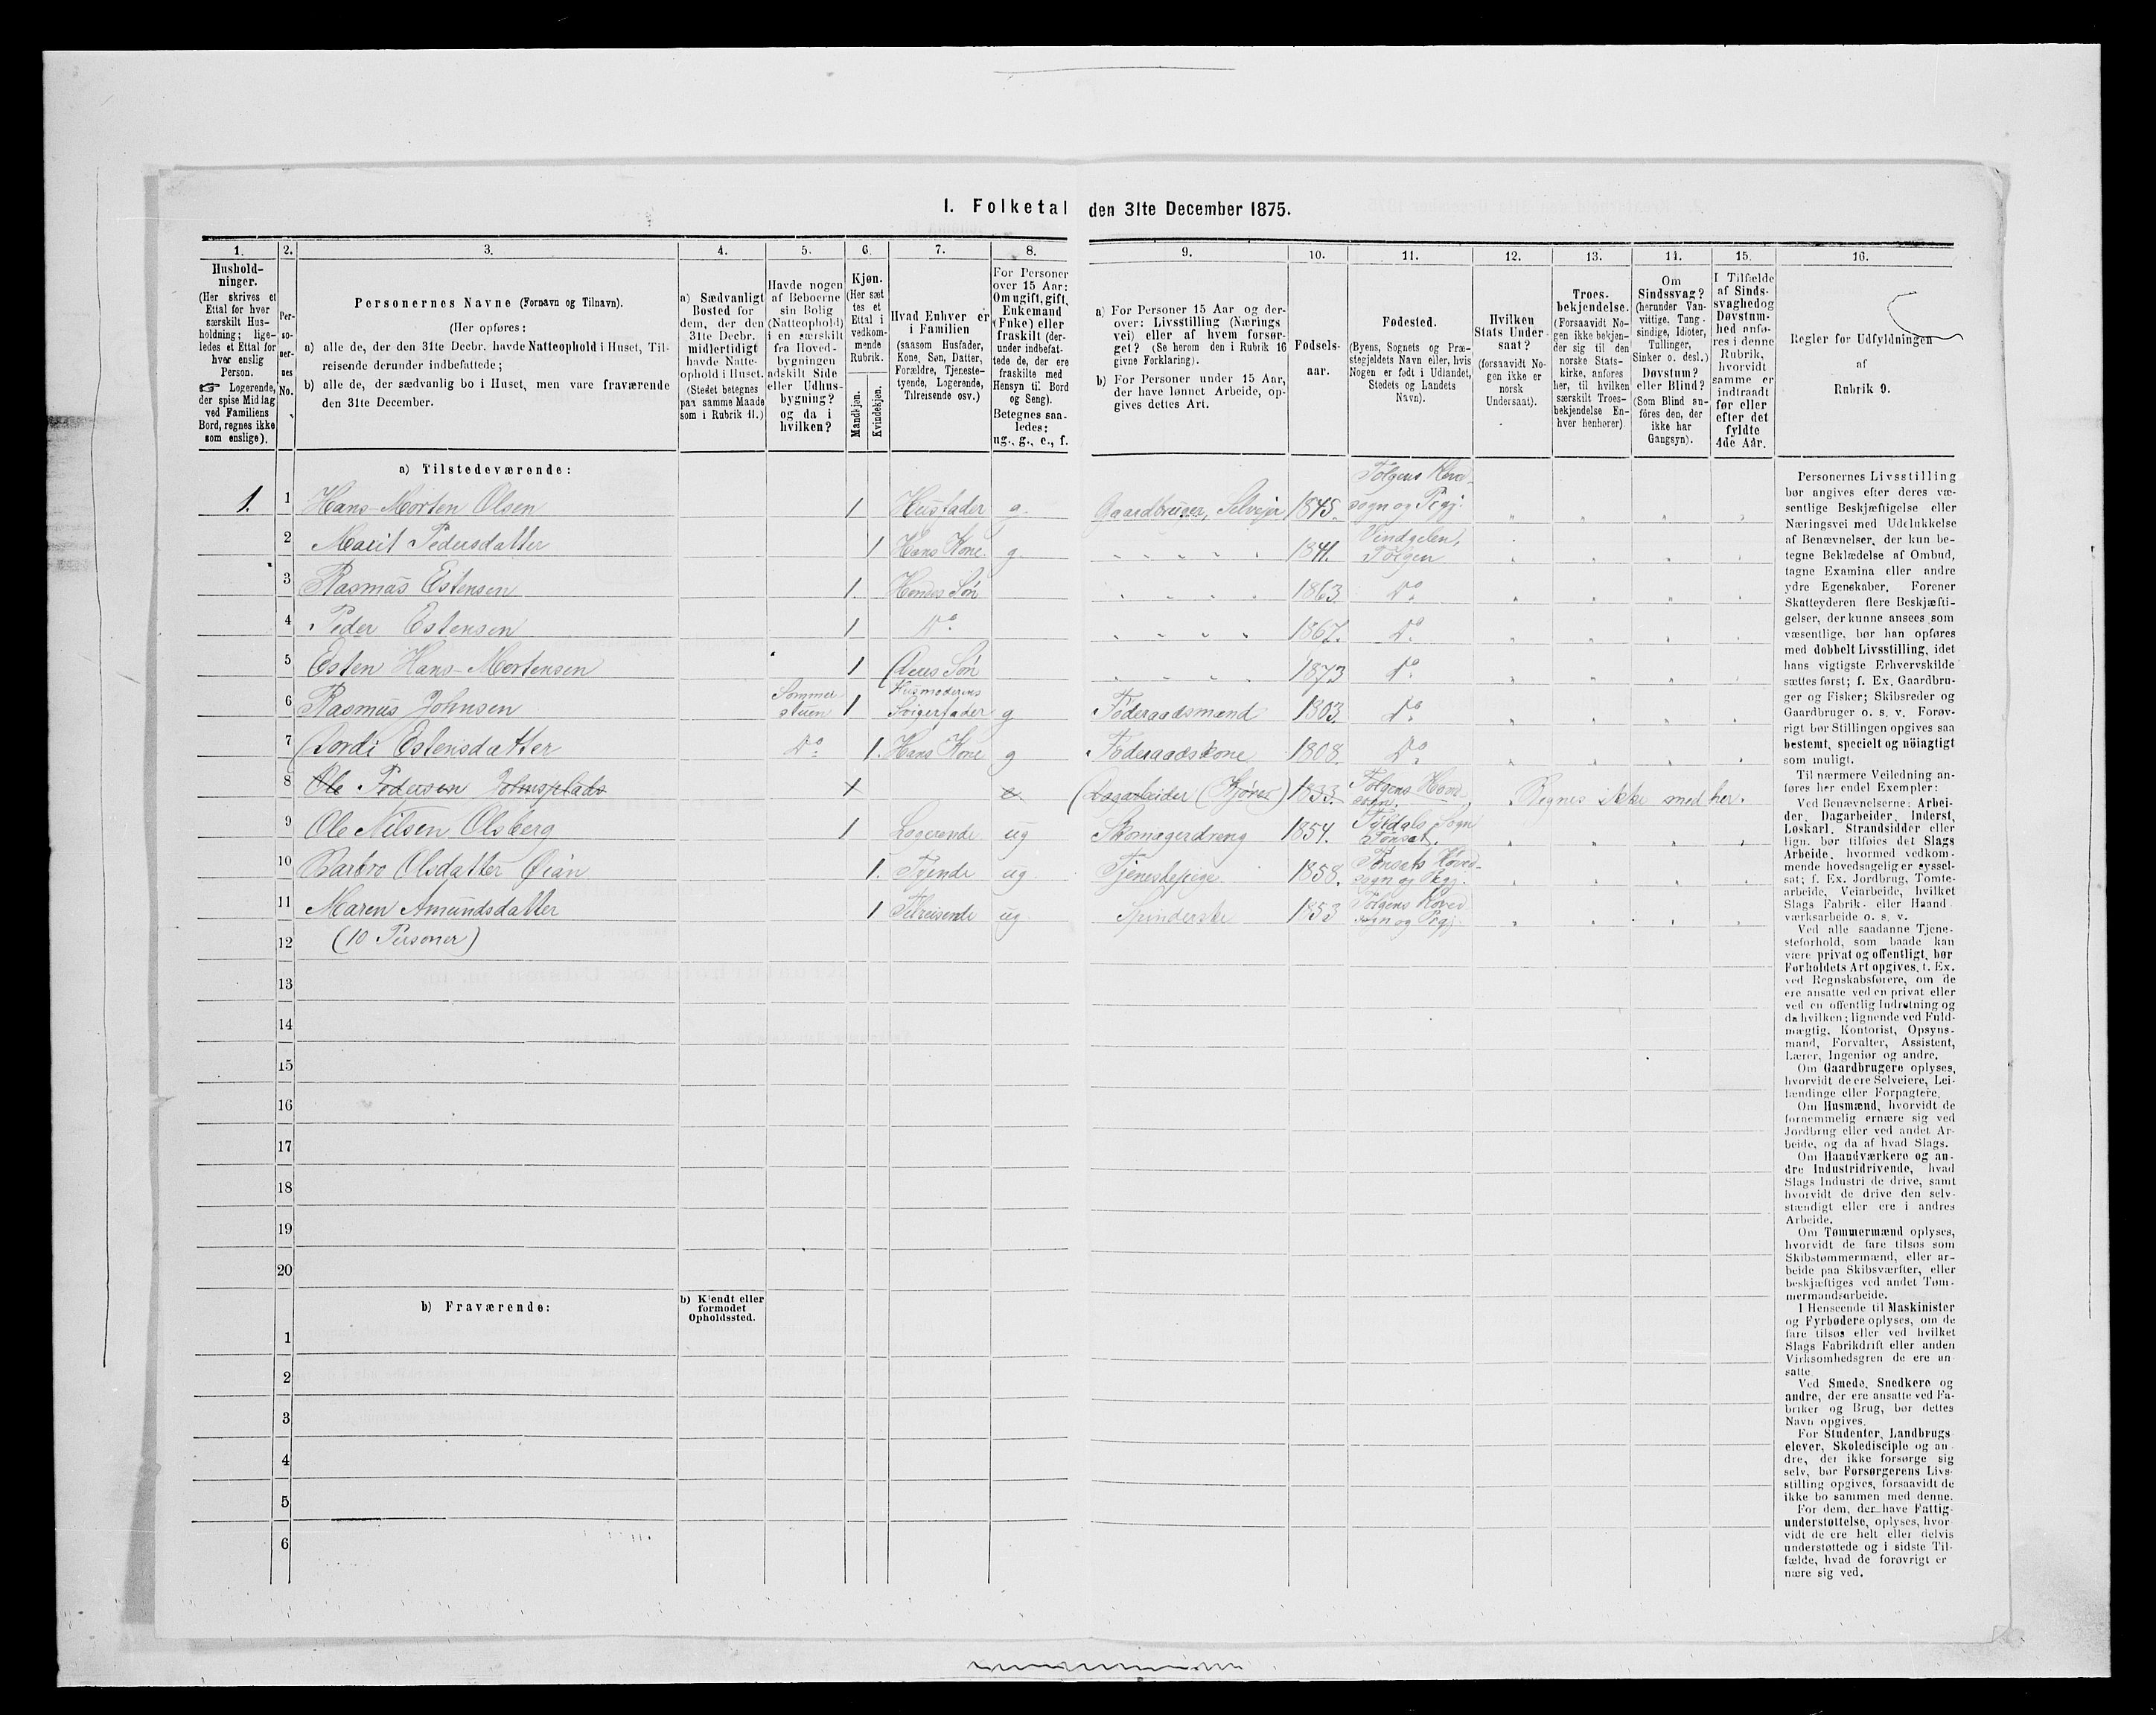 I. Folketal den 31te December 1875.
1. 2. 3. 4. 5. 6. 7. 8. 9. 10. 11. 12. 13. 14. 15. 16.
Hushold-
ninger.
(Her skrives et
Ettal for hver
særskilt Hus-
holdning; lige-
ledes et Ettal for
hver enslig
Person.
☞ Logerende,
der spise Middag
ved Familiens
Bord, regnes ikke
som enslige).
Per-
so-
ner-
nes
No.
Personernes Navne (Fornavn og Tilnavn).
(Her opføres:
a) alle de, der den 31te Decbr. havde Natteophold i Huset, Til-
reisende derunder indbefattede;
b) alle de, der sædvanlig bo i Huset, men vare fraværende
den 31te December.
a) Sædvanligt
Bosted for
dem, der den
31te Decbr.
midlertidigt
havde Natte-
ophold i Huset.
(Stedet betegnes
paa samme Maade
som i Rubrik 11.)
Havde nogen
af Beboerne
sin Bolig
(Natteophold)
i en særskilt
fra Hoved-
bygningen
adskilt Side
eller Udhus-
bygning?
og da i
hvilken?
Kjøn.
(Her sæt
tes et
Ettal i
vedkom-
mende
Rubrik.
Mandkjøn.
Kvindekjøn.
Hvad Enhver er
i Familien
(saasom Husfader,
Kone, Søn, Datter,
Forældre, Tjeneste-
tyende, Logerende,
Tilreisende osv.)
For Personer
over 15 Aar:
Om ugift, gift,
Enkemand
(Enke) eller
fraskilt (der-
under indbefat-
tede de, der ere
fraskilte med
Hensyn til Bord
og Seng).
Betegnes saa-
ledes:
ug., g., e., f.
a) For Personer 15 Aar og der-
over: Livsstilling (Nærings
vei) eller af hvem forsør-
get? (Se herom den i Rubrik 16
givne Forklaring).
b) For Personer under 15 Aar,
der have lønnet Arbeide, op-
gives dettes Art.
Fødsels-
aar.
Fødested.
(Byens, Sognets og Præ-
stegjeldets Navn eller, hvis
Nogen er født i Udlandet,
Stedets og Landets
Navn).
Hvilken
Stats Under-
saat?
(forsaavidt No-
gen ikke er
norsk
Undersaat).
Troes-
bekjendelse.
(Forsaavidt No-
gen ikke bekjen-
der sig til den
norske Stats-
kirke, anføres
her, til hvilken
særskilt Troes-
bekjendelse En-
hver henhører).
Om
Sindssvag?
(herunder Van-
vittige, Tung-
sindige, Idioter,
Tullinger,
Sinker o. desl.)
Døvstum?
eller Blind?
(Som Blind an-
føres den, der
ikke har
Gangsyn).
I Tilfælde
af Sinds-
svaghed og
Døvstum-
hed anfø-
res i denne
Rubrik,
hvorvidt
samme er
indtraadt
før eller
efter det
fyldte
4de Aar.
Regler for Udfyldningen
af
Rubrik 9.
a) Tilstedeværende:
1. 1 Hans-Morten Olsen 1 Husfader g. Gaardbruger, Selveier 1845. Tolgens Hoved-
sogn og Prgj.
2 Marit Pedersdatter 1 Hans Kone g. " " " " " 1841. Vindgelen,
Tolgen
3 Rasmus Estensen 1. Hendes Søn " " " " 1863. Do.
4 Peder Estensen 1 Do " " " " 1867. Do.
5 Esten Hans-Mortensen 1 Deres Søn " " " " 1873 do.
6 Rasmus Johnsen Sommer-
stuen 1 Husmoderens
Svigerfader g Føderaadsmand 1803. Do.
7 Gordi Estensdatter Do 1. Hans Kone g Føderaadskone 1808. Do.
8 Ole Pedersen Johnsplads 1 e. (Dagarbeider (Kjører) 1833. Tolgens Hoved
sogn. Regnes ikke med her.
9 Ole Nilsen Olsberg 1 Logerende ug Skomagerdreng 1854. Tyldals Sogn
Tønset.
10 Barbro Olsdatter Øian 1. Tyende ug. Tjenestepige 1858. Tønsets Hoved-
sogn og Prgj.
11 Maren Amundsdatter 1 Tilreisende ug. Spinderske 1853 Tolgens Hoved
sogn og Prgj.
12 (10 Personer)
13
14
15
16
17
18
19
20
b) Fraværende:
b) Kjendt eller
formodet
Opholdssted.
1
2
3
4
5
6
Personernes Livsstilling
bør angives efter deres væ-
sentlige Beskjæftigelse eller
Næringsvei med Udelukkelse
af Benævnelser, der kun be-
tegne Beklædelse af Ombud,
tagne Examina eller andre
ydre Egenskaber. Forener
Skatteyderen flere Beskjæfti-
gelser, der kunne ansees som
væsentlige, bør han opføres
med dobbelt Livsstilling, idet
hans vigtigste Erhvervskilde
sættes først; f. Ex. Gaardbru-
ger og Fisker; Skibsreder og
Gaardbruger o. s. v. Forøv-
rigt bør Stillingen opgives saa
bestemt, specielt og nöiagtigt
som muligt.
Til nærmere Veiledning an-
føres her endel Exempler:
Ved Benævnelserne: Arbei-
der, Dagarbeider, Inderst,
Løskarl, Strandsidder eller
lign. bør tilføies det Slags
Arbeide, hvormed vedkom-
mende hovedsagelig er syssel-
sat; f. Ex. Jordbrug, Tomte-
arbeide, Veiarbeide, hvilket
Slags Fabrik- eller Haand-
værksarbeide o. s. v.
Ved alle saadanne Tjene-
steforhold, som baade kan
være privat og offentligt, bør
Forholdets Art opgives, f. Ex.
ved Regnskabsførere, om de
ere ansatte ved en privat eller
ved en offentlig Indretning og
da hvilken; lignende ved Fuld-
mægtig, Kontorist, Opsyns-
mand, Forvalter, Assistent,
Lærer, Ingeniør og andre.
Om Gaardbrugere oplyses,
hvorvidt de ere Selveiere, Lei-
lændinge eller Forpagtere.
Om Husmænd, hvorvidt de
fornemmelig ernære sig ved
Jordbrug eller ved andet Ar-
beide, og da af hvad Slags.
Om Haandværkere og an-
dre Industridrivende, hvad
Slags Industri de drive, samt
hvorvidt de drive den selv-
stændigt eller ere i andres
Arbeide.
Om Tømmermænd oplyses,
hvorvidt de fare tilsøs som
Skibstømmermænd, eller ar-
beide paa Skibsværfter, eller
beskjæftiges ved andet Tøm-
mermandsarbeide.
I Henseende til Maskinister
og Fyrbødere oplyses, om de
fare tilsøs eller ved hvilket
Slags Fabrikdrift eller anden
Virksomhedsgren de ere an-
satte.
Ved Smede, Snedkere og
andre, der ere ansatte ved Fa-
briker og Brug, bør dettes
Navn opgives.
For Studenter, Landbrugs-
elever, Skoledisciple og an-
dre, der ikke forsørge sig
selv, bør Forsørgerens Livs-
stilling opgives, forsaavidt de
ikke bo sammen med denne.
For dem, der have Fattig-
understøttelse, oplyses, hvor-
vidt de ere helt eller delvis
understøttede og i sidste Til-
fælde, hvad de forøvrigt er
nære sig ved.